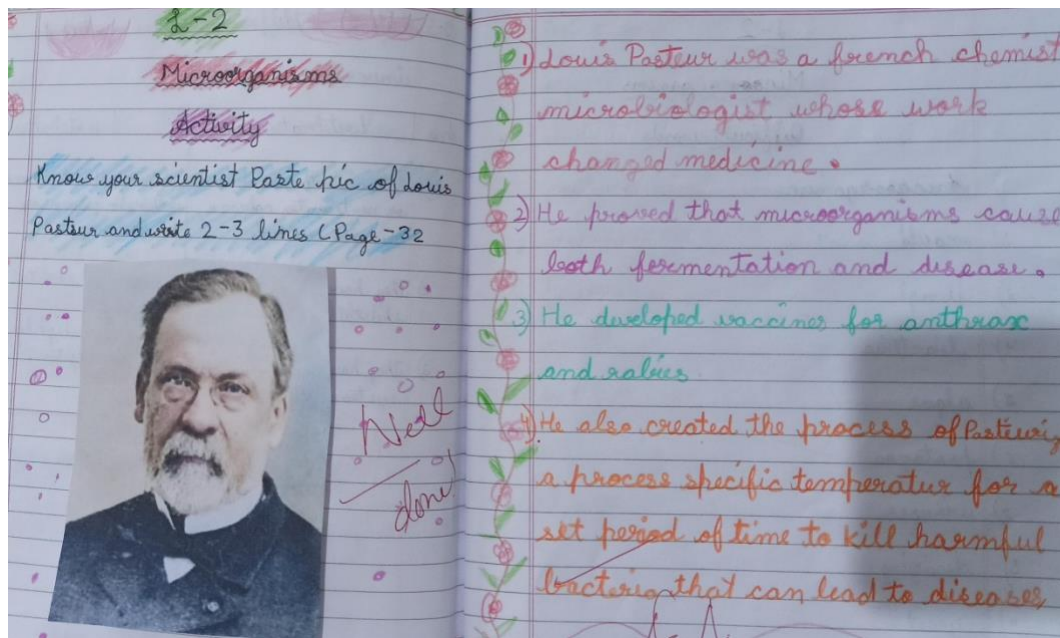 L-2
Microorganisms
Activity
Know your scientist Paste pic of Louis
Pasteur and write 2-3 lines (Page-32
Well
done!
1) Louis Pasteur was a french chemist
microbiologist whose work
changed medicine.
2) He proved that microorganisms cause
both fermentation and disease.
3) He developed vaccines for anthrax
and rabies
4) He also created the process of Pasteuriz
a process specific temperatur for a
set period of time to kill harmful
bacteria that can lead to diseases